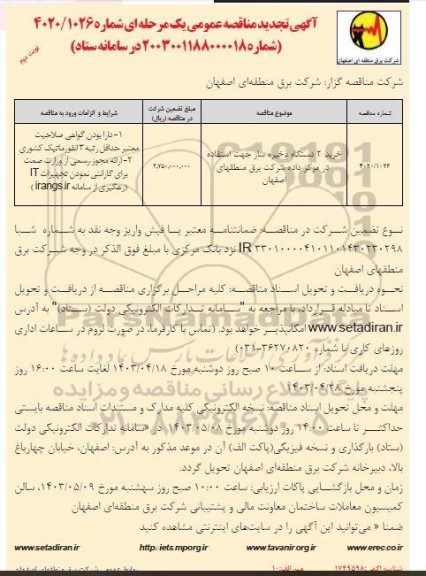 آگهی تجدید مناقصه عمومی یک مرحله‌ای شماره ۴۰۲۰/۱۰۲۶
(شماره ۲۰۰۳۰۰۱۱۸۸۰۰۰۰۱۸ در سامانه ستاد)
نوبت دوم
شرکت برق منطقه ای اصفهان
شرکت مناقصه گزار: شرکت برق منطقه‌ای اصفهان
شماره مناقصه
موضوع مناقصه
مبلغ تضمین شرکت در مناقصه (ریال)
شرایط و الزامات ورود به مناقصه
۴۰۲۰/۱۰۲۶
خرید ۲ دستگاه ذخیره ساز جهت استفاده
در مرکز داده شرکت برق منطقه‌ای
اصفهان
۲,۷۵۰,۰۰۰,۰۰۰
۱- دارا بودن گواهی صلاحیت
معتبر حداقل رتبه ۳ انفورماتیک کشوری
۲- ارائه مجوز رسمی از وزارت صمت
برای گارانتی نمودن تجهیزات IT
(رهگیری از سامانه irangs.ir)
نوع تضمین شرکت در مناقصه: ضمانتنامه معتبر یا فیش واریز وجه نقد به شماره شبا
IR ۳۳۰۱۰۰۰۰۴۱۰۱۱۰۱۴۳۰۲۳۰۲۹۸ نزد بانک مرکزی با مبلغ فوق الذکر در وجه شرکت برق
منطقه‌ای اصفهان
نحوه دریافت و تحویل اسناد مناقصه: کلیه مراحل برگزاری مناقصه از دریافت و تحویل
اسناد تا مبادله قرارداد، با مراجعه به "سامانه تدارکات الکترونیکی دولت (ستاد)" به آدرس
www.setadiran.ir امکانپذیر خواهد بود. (تماس با کارفرما، در صورت لزوم در ساعات اداری
روزهای کاری با شماره ۳۶۲۷۰۸۲۰-۰۳۱)
مهلت دریافت اسناد: از ساعت ۱۰ صبح روز دوشنبه مورخ ۱۴۰۳/۰۴/۱۸ لغایت ساعت ۱۶:۰۰ روز
پنجشنبه مورخ ۱۴۰۳/۰۴/۲۸
مهلت و محل تحویل اسناد مناقصه: نسخه الکترونیکی کلیه مدارک و مستندات اسناد مناقصه بایستی
حداکثر تا ساعت ۱۴:۰۰ روز دوشنبه مورخ ۱۴۰۳/۰۵/۰۸ در «سامانه تدارکات الکترونیکی دولت
(ستاد) بارگذاری و نسخه فیزیکی (پاکت الف) آن در موعد مذکور به آدرس: اصفهان، خیابان چهارباغ
بالا، دبیرخانه شرکت برق منطقه‌ای اصفهان تحویل گردد.
زمان و محل بازگشایی پاکات ارزیابی: ساعت ۱۰:۰۰ صبح روز سه‌شنبه مورخ ۱۴۰۳/۰۵/۰۹، سالن
کمیسیون معاملات ساختمان معاونت مالی و پشتیبانی شرکت برق منطقه‌ای اصفهان
ضمنا « می‌توانید این آگهی را در سایت‌های اینترنتی مشاهده کنید
www.erec.co.ir www.tavanir.org.ir http://iets.mporg.ir www.setadiran.ir
شناسه آگهی: ۱۷۴۹۵۹۸